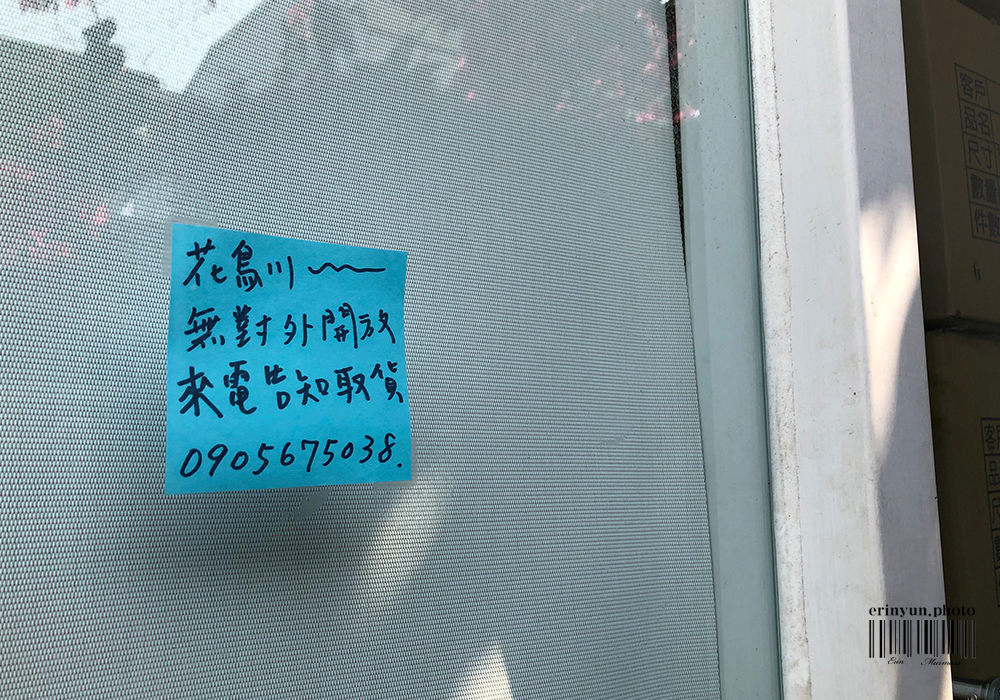 花鳥川～
無對外開放
來電告知取貨
0905675038.
客戶
品名
尺寸
數量
件數
6
erinyun.photo
Erin